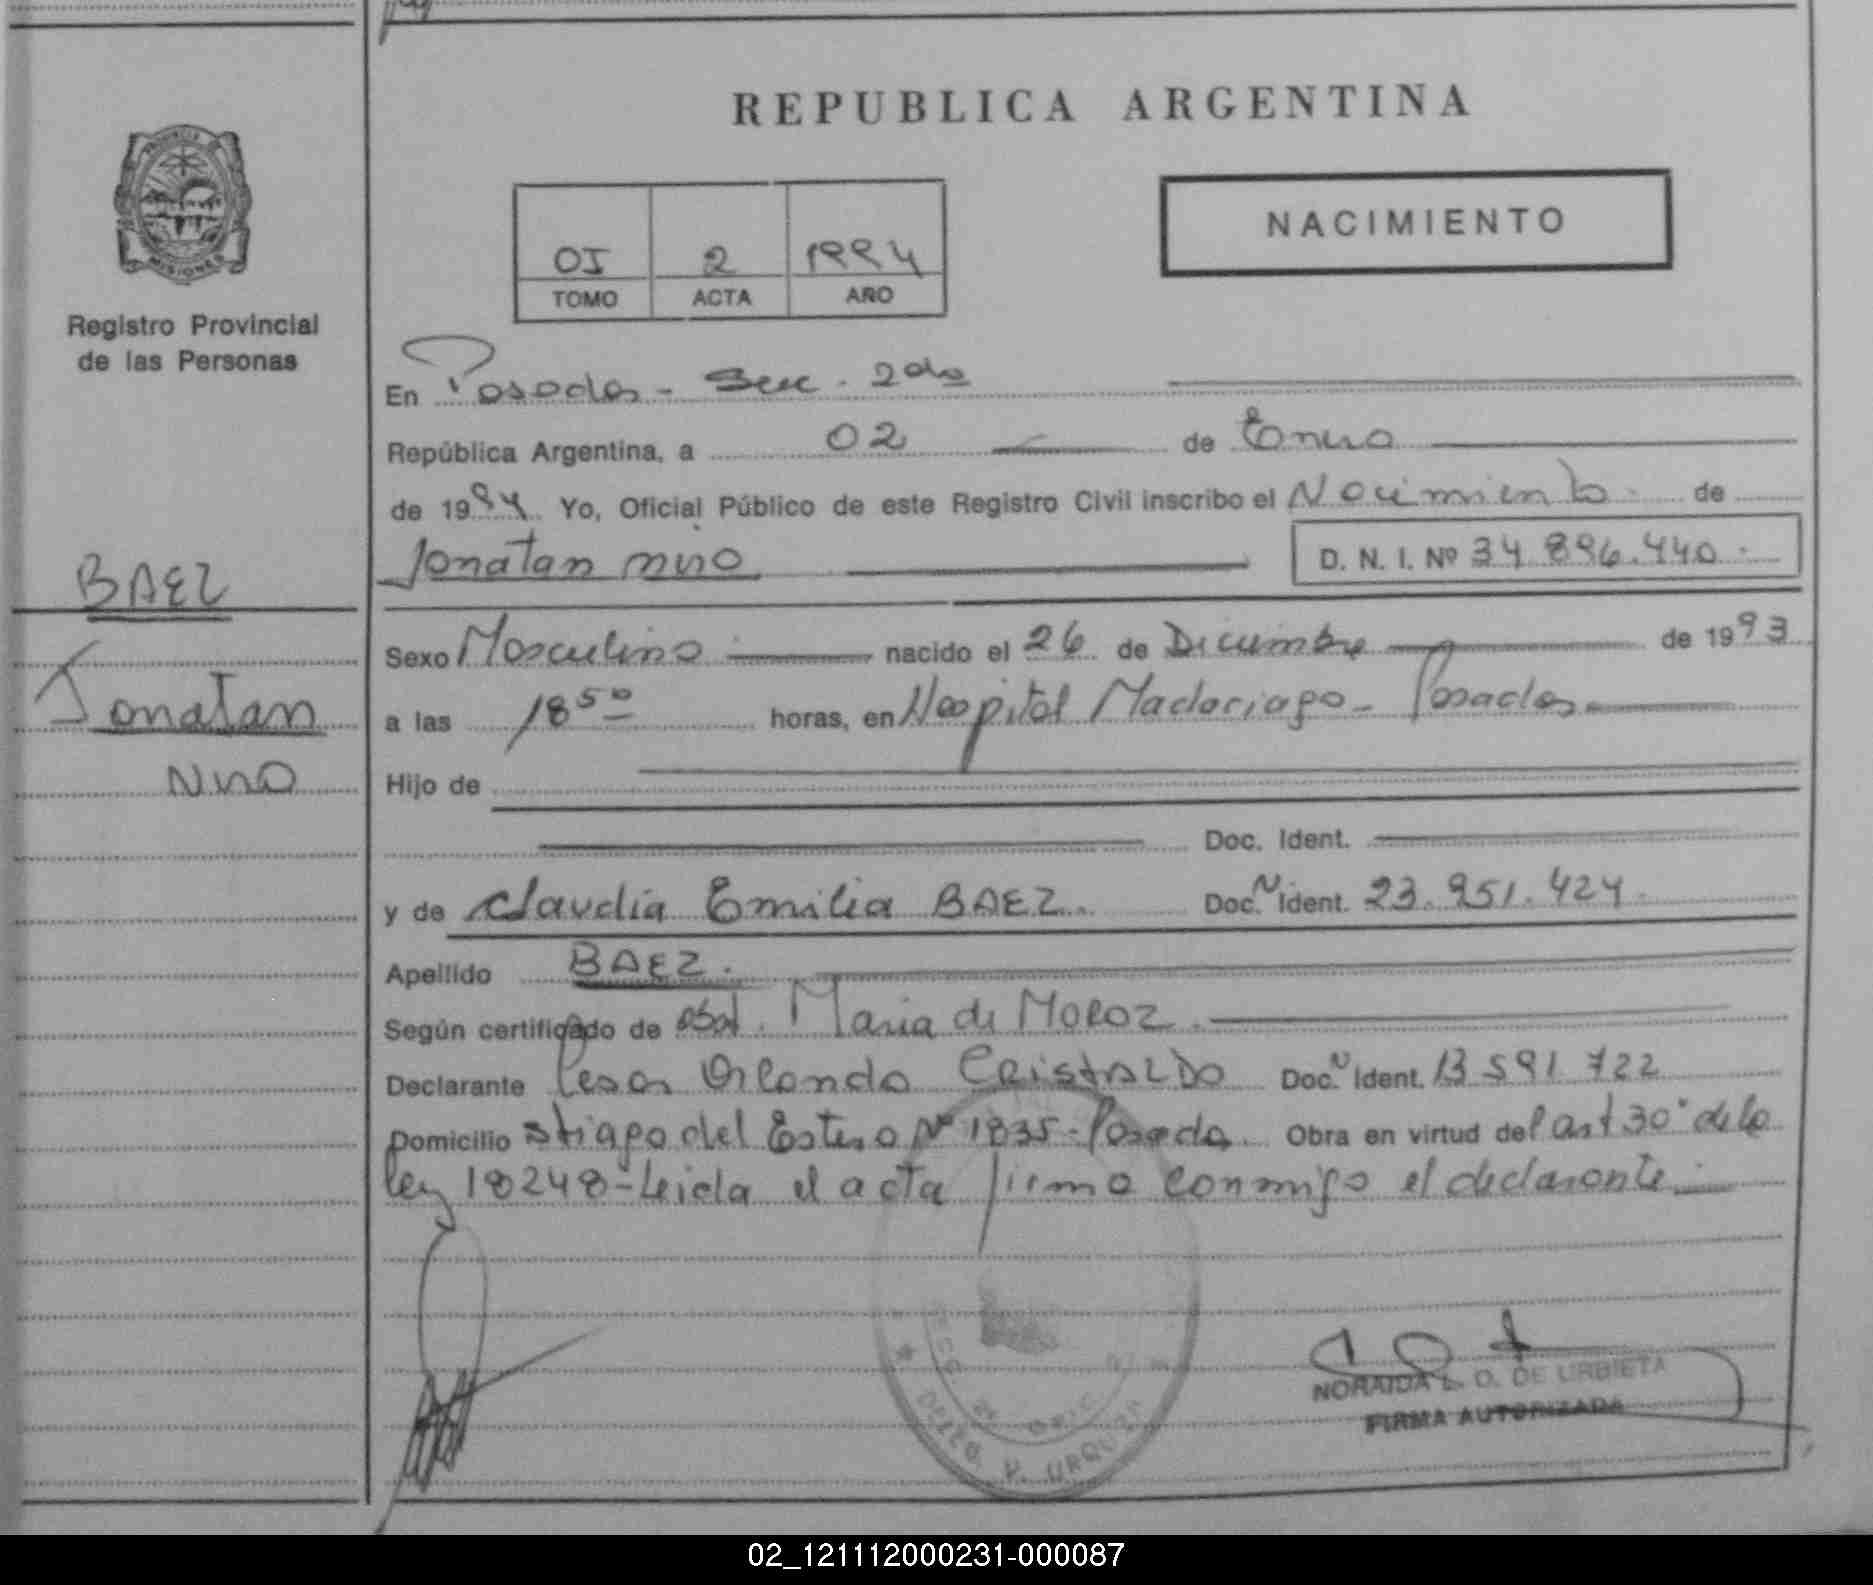 REPUBLICA ARGENTINA
NACIMIENTO
PROVINCIA
MISIONES
Registro Provincial
de las Personas
BAEZ
Jonatan
NIRO
OI 2 1994
TOMO ACTA AÑO
En Posadas - Secc. 2da
República Argentina, a 02 de Enero
de 1994 Yo, Oficial Público de este Registro Civil inscribo el Nacimiento de
Jonatan D. N. I. Nº 34.896.440.
Sexo Masculino nacido el 26 de Diciembre de 1993
a las 18 50 horas, en Hospital Madariaga - Posadas
Hijo de
Doc. Ident.
y de Claudia Emilia BAEZ. Doc. N Ident. 23.951.424.
Apellido BAEZ.
Según certificado de obst. Maria de MOROZ.
Declarante Cesar Orlando CRISTALDO Doc. N Ident. 13 591 722
Domicilio Stiago del Estero Nº 1835 - Posadas. Obra en virtud del art 30° de la
ley 18248 - Leida el acta firma conmigo el declarante.
DPTO. H. URQUIZA
NORAIDA L. O. DE URBIETA
FIRMA AUTORIZADA
02_121112000231-000087